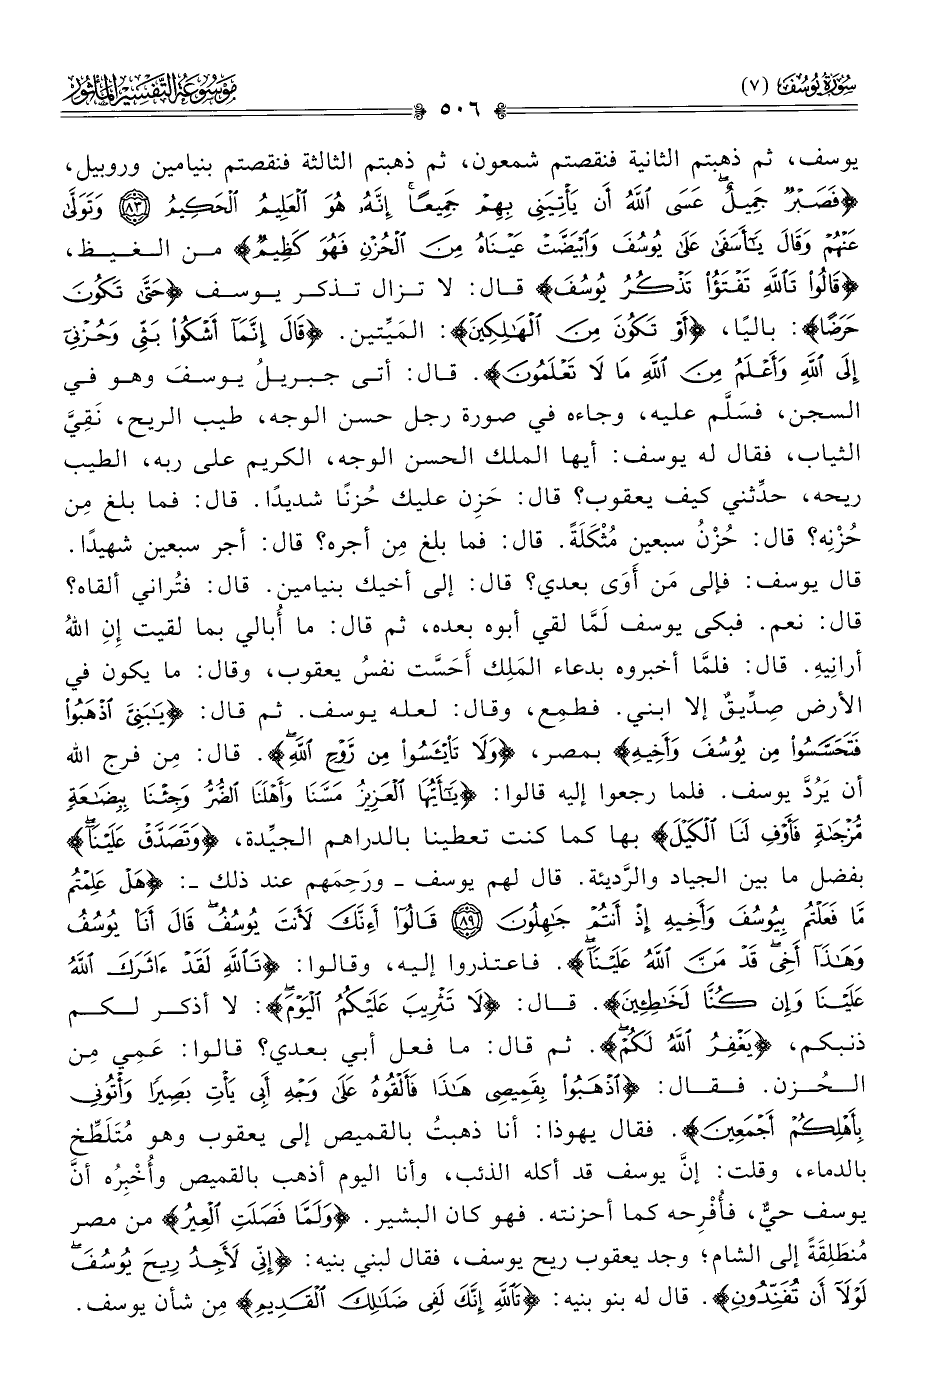 سُورَةُ يُوسُفَ (٧)
٥٠٦
مَوْسُوعَةُ التَّفْسِيرِ المَأثُورِ
يوسف، ثم ذهبتم الثانية فنقصتم شمعون، ثم ذهبتم الثالثة فنقصتم بنيامين وروبيل،
﴿فَصَبْرٌ جَمِيلٌ عَسَى ٱللَّهُ أَن يَأْتِيَنِى بِهِمْ جَمِيعًا إِنَّهُۥ هُوَ ٱلْعَلِيمُ ٱلْحَكِيمُ ۝٨٣ وَتَوَلَّىٰ
عَنْهُمْ وَقَالَ يَٰٓأَسَفَىٰ عَلَىٰ يُوسُفَ وَٱبْيَضَّتْ عَيْنَاهُ مِنَ ٱلْحُزْنِ فَهُوَ كَظِيمٌ﴾ من الغيظ،
﴿قَالُوا۟ تَٱللَّهِ تَفْتَؤُا۟ تَذْكُرُ يُوسُفَ﴾ قال: لا تزال تذكر يوسف ﴿حَتَّىٰ تَكُونَ
حَرَضًا﴾: باليًا، ﴿أَوْ تَكُونَ مِنَ ٱلْهَٰلِكِينَ﴾: الميّتين. ﴿قَالَ إِنَّمَآ أَشْكُوا۟ بَثِّى وَحُزْنِىٓ
إِلَى ٱللَّهِ وَأَعْلَمُ مِنَ ٱللَّهِ مَا لَا تَعْلَمُونَ﴾. قال: أتى جبريلُ يوسفَ وهو في
السجن، فسَلَّم عليه، وجاءه في صورة رجل حسن الوجه، طيب الريح، نَقِيَّ
الثياب، فقال له يوسف: أيها الملك الحسن الوجه، الكريم على ربه، الطيب
ريحه، حدِّثني كيف يعقوب؟ قال: حَزِن عليك حُزنًا شديدًا. قال: فما بلغ مِن
حُزْنِه؟ قال: حُزْنُ سبعين مُثْكَلَةً. قال: فما بلغ مِن أجره؟ قال: أجر سبعين شهيدًا.
قال يوسف: فإلى مَن أَوَى بعدي؟ قال: إلى أخيك بنيامين. قال: فتُراني ألقاه؟
قال: نعم. فبكى يوسف لَمَّا لقي أبوه بعده، ثم قال: ما أُبالي بما لقيت إنِ اللهُ
أرانِيهِ. قال: فلمَّا أخبروه بدعاء المَلِك أَحَسَّت نفسُ يعقوب، وقال: ما يكون في
الأرض صِدِّيقٌ إلا ابني. فطمِع، وقال: لعله يوسف. ثم قال: ﴿يَٰبَنِىَّ ٱذْهَبُوا۟
فَتَحَسَّسُوا۟ مِن يُوسُفَ وَأَخِيهِ﴾ بمصر، ﴿وَلَا تَا۟يْـَٔسُوا۟ مِن رَّوْحِ ٱللَّهِ﴾. قال: مِن فرج الله
أن يَرُدَّ يوسف. فلما رجعوا إليه قالوا: ﴿يَٰٓأَيُّهَا ٱلْعَزِيزُ مَسَّنَا وَأَهْلَنَا ٱلضُّرُّ وَجِئْنَا بِبِضَٰعَةٍ
مُّزْجَىٰةٍ فَأَوْفِ لَنَا ٱلْكَيْلَ﴾ بها كما كنت تعطينا بالدراهم الجيِّدة، ﴿وَتَصَدَّقْ عَلَيْنَآ﴾
بفضل ما بين الجياد والرَّديئة. قال لهم يوسف ـ ورَحِمَهم عند ذلك ـ: ﴿هَلْ عَلِمْتُم
مَّا فَعَلْتُم بِيُوسُفَ وَأَخِيهِ إِذْ أَنتُمْ جَٰهِلُونَ ۝٨٩ قَالُوٓا۟ أَءِنَّكَ لَأَنتَ يُوسُفُ قَالَ أَنَا۠ يُوسُفُ
وَهَٰذَآ أَخِى قَدْ مَنَّ ٱللَّهُ عَلَيْنَآ﴾. فاعتذروا إليه، وقالوا: ﴿تَٱللَّهِ لَقَدْ ءَاثَرَكَ ٱللَّهُ
عَلَيْنَا وَإِن كُنَّا لَخَٰطِـِٔينَ﴾. قال: ﴿لَا تَثْرِيبَ عَلَيْكُمُ ٱلْيَوْمَ﴾: لا أذكر لكم
ذنبكم، ﴿يَغْفِرُ ٱللَّهُ لَكُمْ﴾. ثم قال: ما فعل أبي بعدي؟ قالوا: عَمِي مِن
الحُزن. فقال: ﴿ٱذْهَبُوا۟ بِقَمِيصِى هَٰذَا فَأَلْقُوهُ عَلَىٰ وَجْهِ أَبِى يَأْتِ بَصِيرًا وَأْتُونِى
بِأَهْلِكُمْ أَجْمَعِينَ﴾. فقال يهوذا: أنا ذهبتُ بالقميص إلى يعقوب وهو مُتَلَطِّخ
بالدماء، وقلت: إنَّ يوسف قد أكله الذئب، وأنا اليوم أذهب بالقميص وأُخْبِرُه أنَّ
يوسف حيٌّ، فأُفْرِحه كما أحزنته. فهو كان البشير. ﴿وَلَمَّا فَصَلَتِ ٱلْعِيرُ﴾ من مصر
مُنطَلِقَةً إلى الشام؛ وجد يعقوب ريح يوسف، فقال لبني بنيه: ﴿إِنِّى لَأَجِدُ رِيحَ يُوسُفَ
لَوْلَآ أَن تُفَنِّدُونِ﴾. قال له بنو بنيه: ﴿تَٱللَّهِ إِنَّكَ لَفِى ضَلَٰلِكَ ٱلْقَدِيمِ﴾ مِن شأن يوسف.